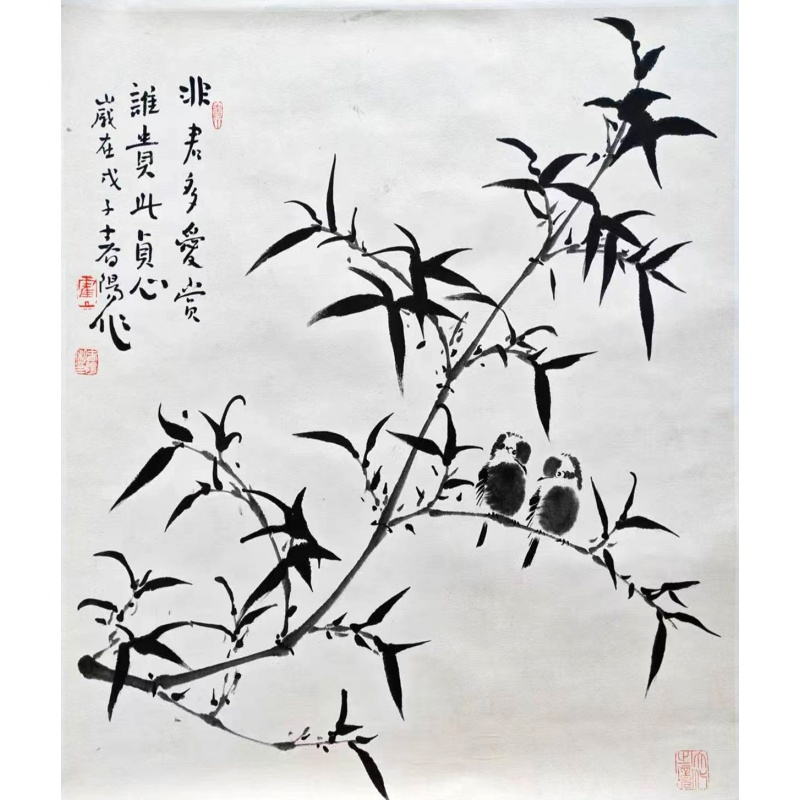 非君多愛賞
誰貴此貞心
歲在戊子春陽作